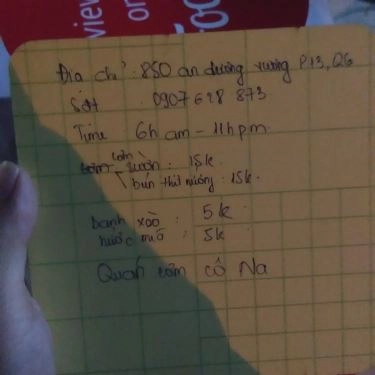 view
or
Địa chỉ : 850 an dương vương P13, Q6
Sđt : 0907 628 873
Time : 6h am - 11h pm.
cơm sườn : 15k
bún thịt nướng : 15k.
banh xoò : 5k
nước mố : 5k
Quán cơm cô Na